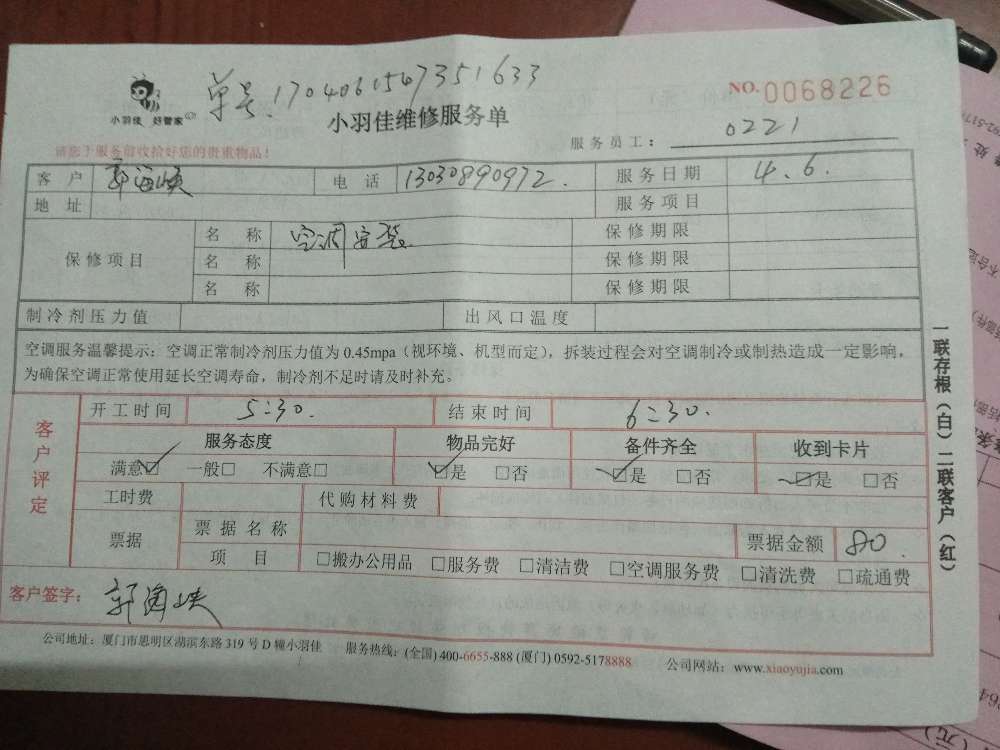 单号:1704061547351633
NO.0068226
小羽佳 好管家
小羽佳维修服务单
服务员工: 0221
请您于服务前收拾好您的贵重物品!
客户 郭海峡 电话 13030890972. 服务日期 4.6.
地址 服务项目
保修项目 名称 空调安装 保修期限
名称 保修期限
名称 保修期限
制冷剂压力值 出风口温度
空调服务温馨提示:空调正常制冷剂压力值为0.45mpa(视环境、机型而定),拆装过程会对空调制冷或制热造成一定影响,
为确保空调正常使用延长空调寿命,制冷剂不足时请及时补充。
客户评定
开工时间 5:30. 结束时间 6:30.
服务态度 物品完好 备件齐全 收到卡片
满意☑ 一般□ 不满意□ ☑是 □否 ☑是 □否 ☑是 □否
工时费 代购材料费
票据 票据名称 票据金额 80.
项目 □搬办公用品 □服务费 □清洁费 □空调服务费 □清洗费 □疏通费
客户签字: 郭海峡
公司地址:厦门市思明区湖滨东路319号D幢小羽佳 服务热线:(全国)400-6655-888(厦门)0592-5178888 公司网站:www.xiaoyujia.com
一联存根(白)二联客户(红)